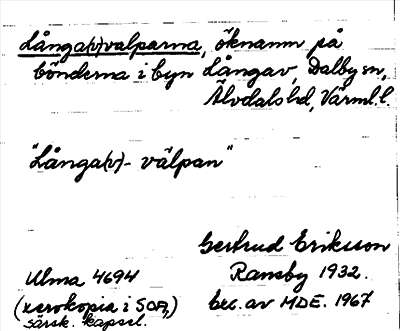 Långa(v)valparna, öknamn på
bönderna i byn Långav, Dalby sn,
Älvdals hd, Värml. l.
"Långa(v)-välpan"
Gertrud Eriksson
Ulma 4694 Ransby 1932.
(xerokopia i SOFI,) exc. av MDE. 1967
särsk. kapsel.